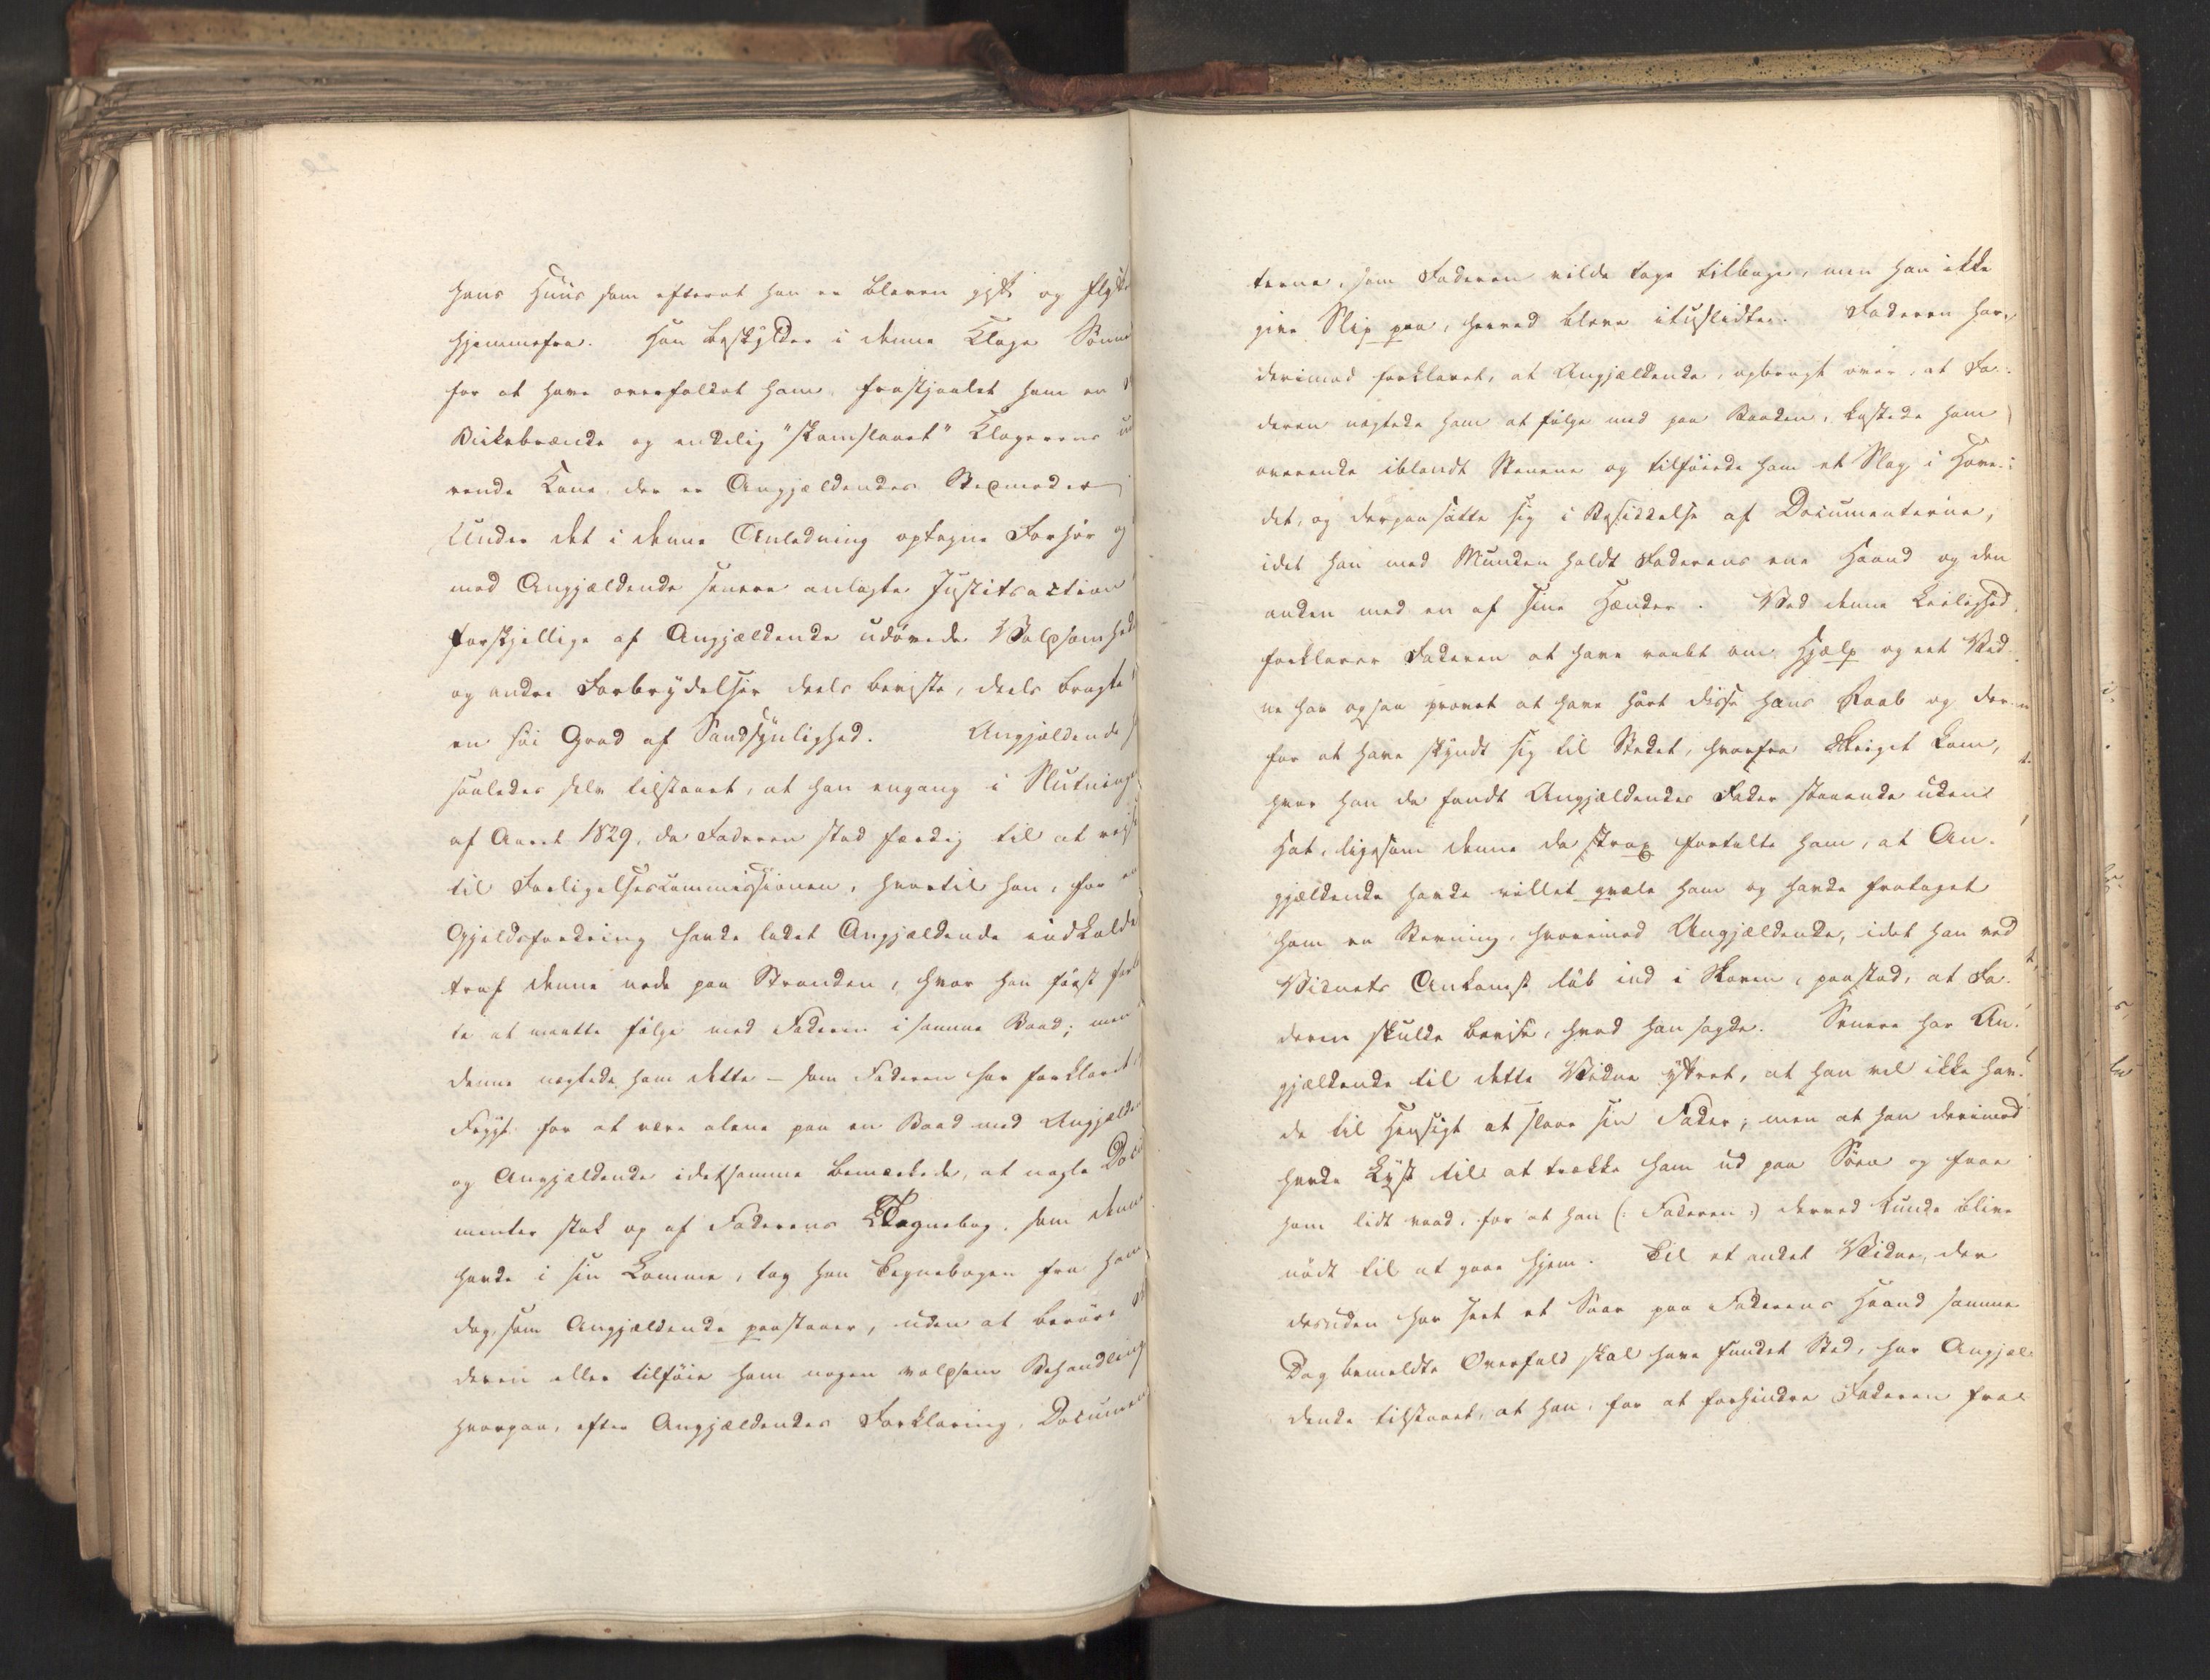 hans Huus som efterat han er bleven gift og flytte
hjemmefra. Han beskylder i denne Klage Sønne
for at have overfaldet ham, frastjaalet ham en
Birkebrænde og endelig "skamslaaet" Klagerens
rende Kone, der er Angjældendes Stepmoder
Under det i denne Anledning optagne Forhør og
mod Angjældende senere anlagte Justitsaction
forskjellige af Angjældende udövede Voldsomhed
og andre Forbrydelser deels beviste, deels bragte
en höi Grad af Sandsynlighed. Angjældende
saaledes selv tilstaaet, at han engang i Slutninge
af Aaret 1829, da Faderen stod færdig til at reise
til Forligelsescommissionen, hvortil han, for en
Gjeldsfordring havde ladet Angjældende indkalde
traf denne nede paa Stranden, hvor han først for
te at maatte fölge med Faderen i samme Baad; men
denne nægtede ham dette – som Faderen har forklaret
Frygt for at være alene paa en Baad med Angjælden
og Angjældende idetsamme bemærkede, at nogle Docu
menter stak op af Faderens Tegnebog, som denne
havde i sin Lomme, tog han Tegnebogen fra ham
dog, som Angjældende paastaaer, uden at beröre
deren eller tilföie ham nogen voldsom Behandling
hvorpaa, efter Angjældendes Forklaring, Documen
terne, som Faderen vilde tage tilbage, men han ikke
give Slip paa, herved bleve ituslidte. Faderen har
derimod forklaret, at Angjældende, opbragt over, at Fa-
deren nægtede ham at fölge med paa Baaden, kastede ham
overende iblandt Stenene og tilföiede ham et Slag i Hove-
det, og derpaa satte sig i Besiddelse af Documenterne,
idet han med Munden holdt Faderens ene Haand og den
anden med en af sine Hænder. Ved denne Leilighed
forklarer Faderen at have raabt om Hjælp og eet Vid-
ne har ogsaa provet at have hört disse hans Raab og der-
for at have skyndt sig til Stedet, hvorfra Skriget kom,
hvor han da fandt Angjældendes Fader staaende uden
Hat, ligesom denne da strax fortalte ham, at An-
gjældende havde villet qvæle ham og havde frataget
ham en Stevning, hvorimod Angjældende, idet han ved
Vidnets Ankomst löb ind i Skoven, paastod, at Fa-
deren skulde bevise, hvad han sagde. Senere har An-
gjældende til dette Vidne yttret, at han vel ikke hav-
de til Hensigt at slaae sin Fader; men at han derimod
havde Lyst til at trække ham ud paa Söen og faae
ham lidt vaad, for at han (: Faderen :) derved kunde blive
nödt til at gaae hjem. Til et andet Vidne, der
desuden har seet et Saar paa Faderens Haand samme
Dag bemeldte Overfald skal have fundet Sted, har Angjæl-
dende tilstaaet, at han, for at forhindre Faderen fra